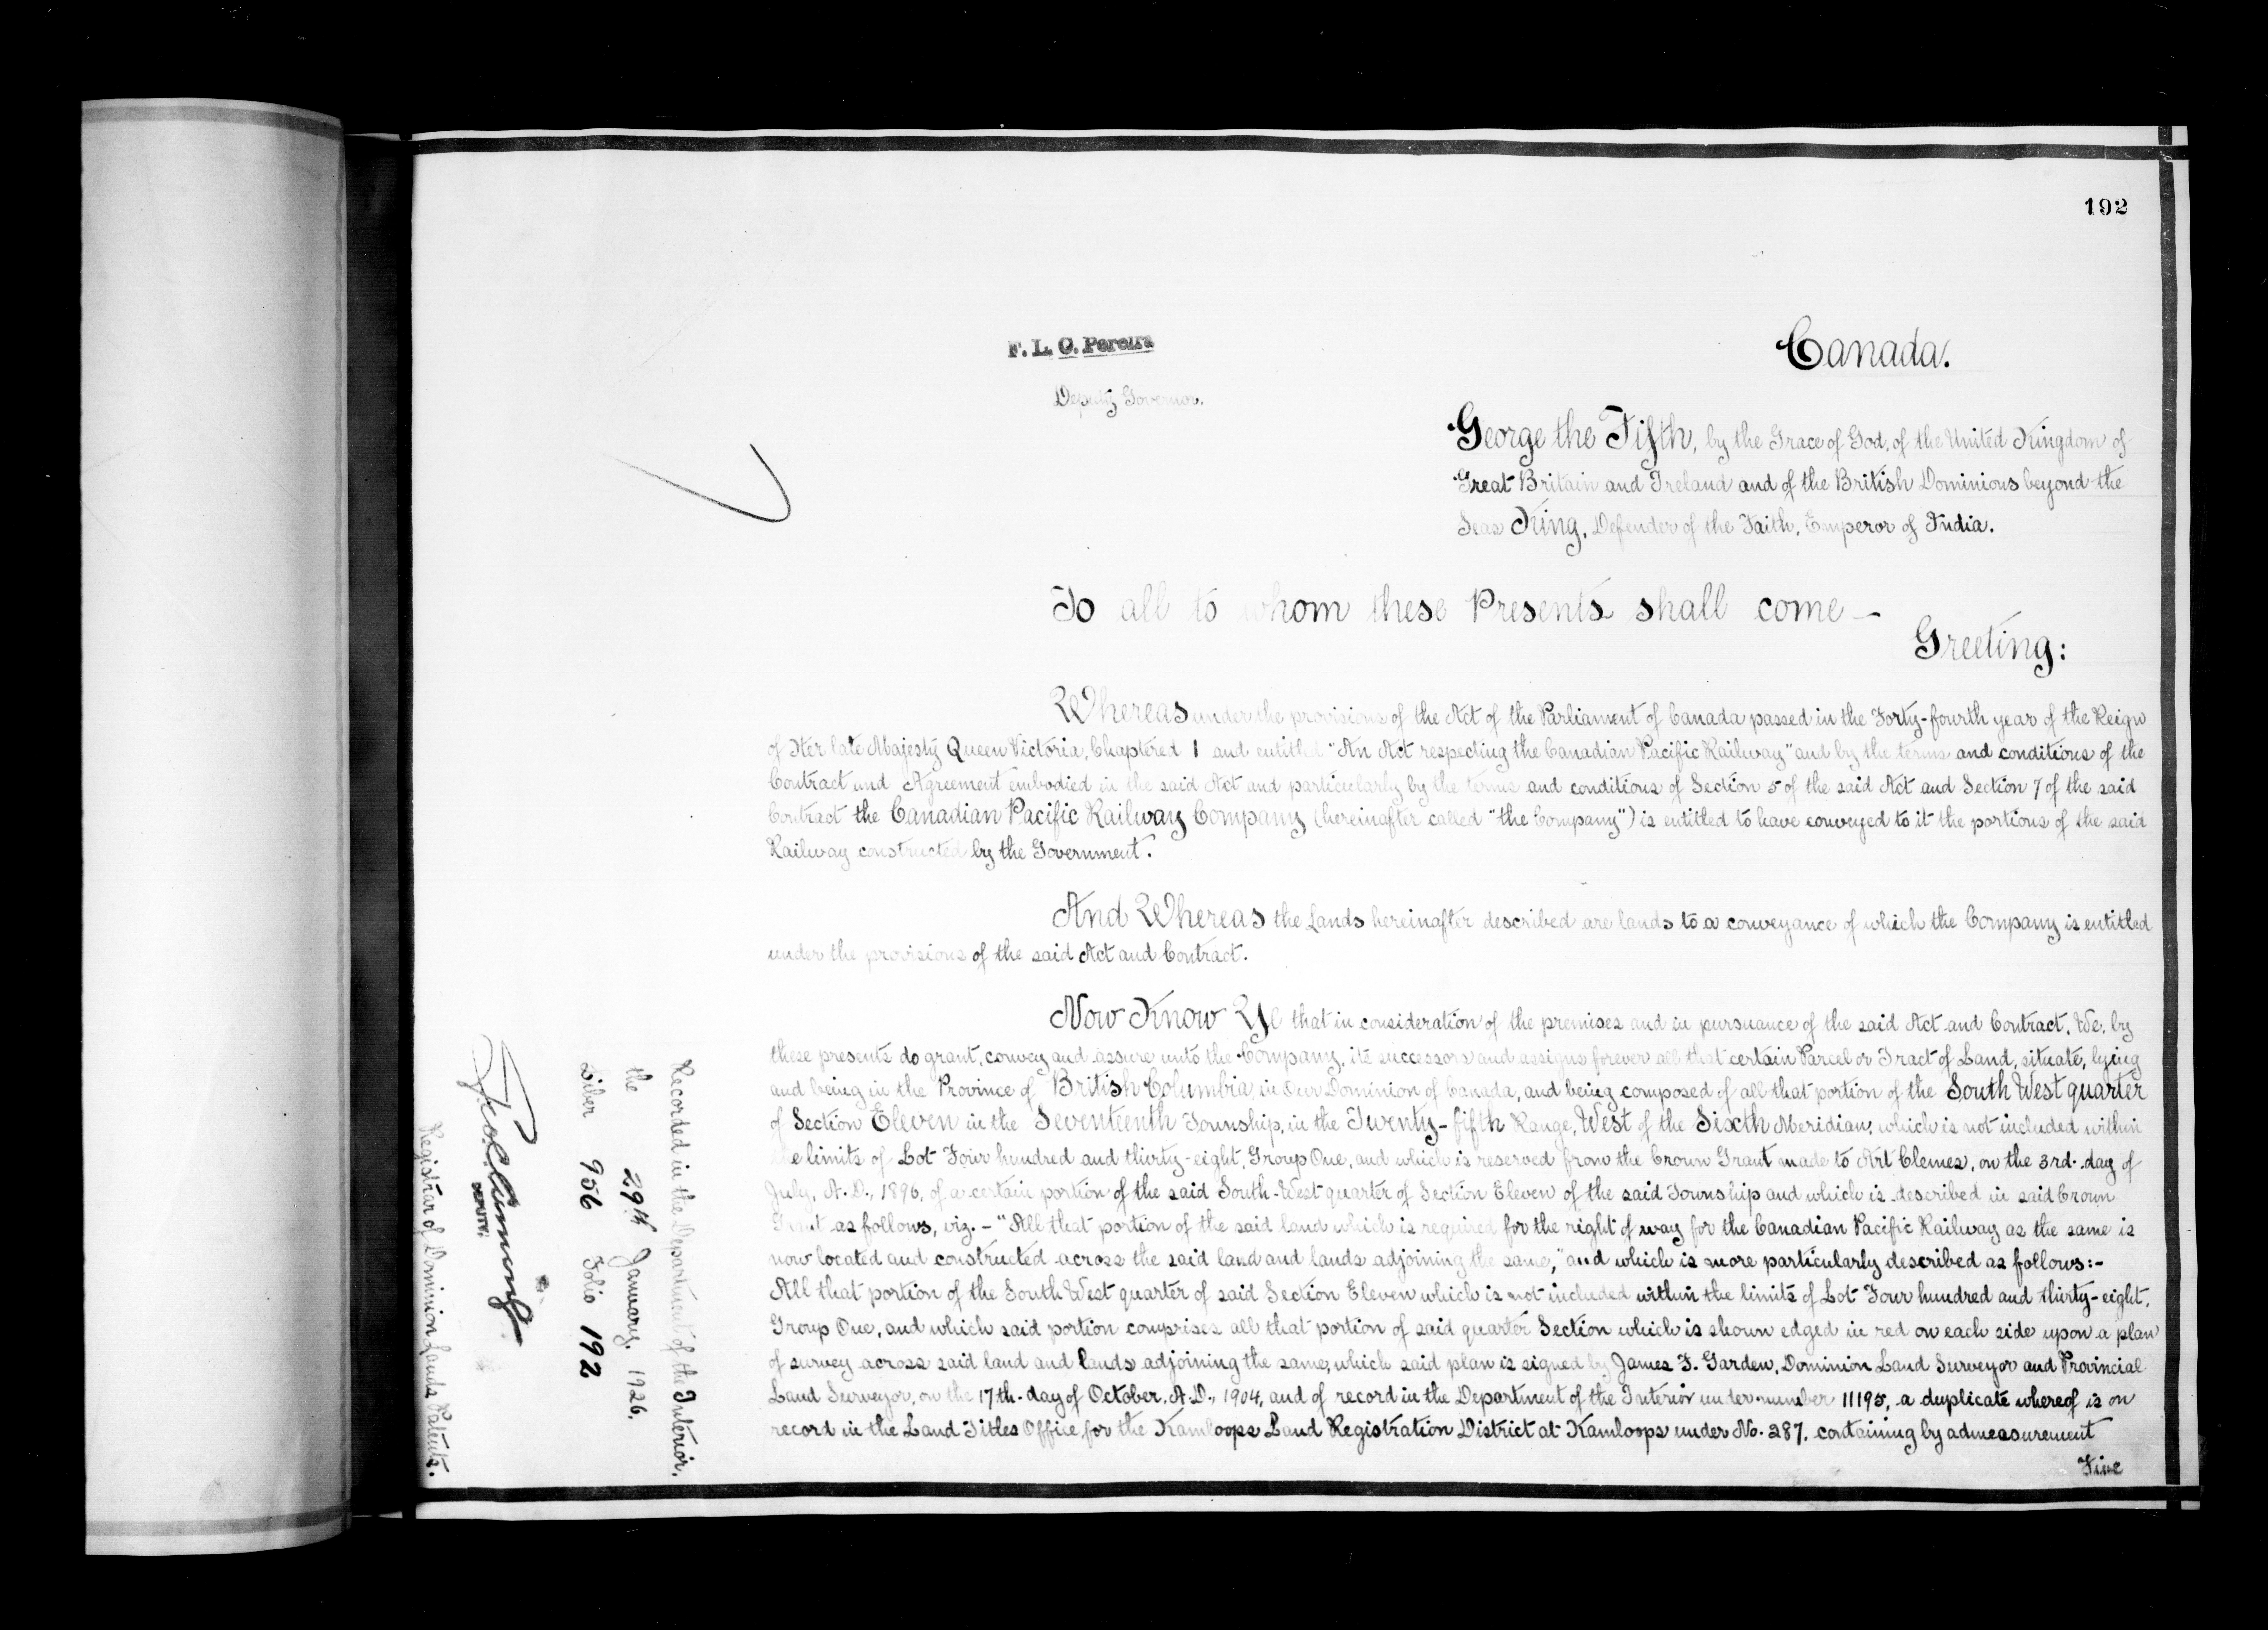 192
F. L. C. Pereira
Deputy Governor.
Canada.
George the Fifth, by the Grace of God, of the United Kingdom of
Great Britain and Ireland and of the British Dominions beyond the
Seas King, Defender of the Faith, Emperor of India.
To all to whom these Presents shall come —
Greeting:
Whereas under the provisions of the Act of the Parliament of Canada passed in the Forty-fourth year of the Reign
of Her late Majesty Queen Victoria, Chaptered 1 and entitled "An Act respecting the Canadian Pacific Railway" and by the terms and conditions of the
Contract and Agreement embodied in the said Act and particularly by the terms and conditions of Section 5 of the said Act and Section 7 of the said
Contract the Canadian Pacific Railway Company (hereinafter called "the Company") is entitled to have conveyed to it the portions of the said
Railway constructed by the Government.
And Whereas the Lands hereinafter described are lands to a conveyance of which the Company is entitled
under the provisions of the said Act and Contract.
Now Know Ye that in consideration of the premises and in pursuance of the said Act and Contract, We, by
these presents do grant, convey and assure unto the Company, its successors and assigns forever all that certain Parcel or Tract of Land, situate, lying
and being in the Province of British Columbia, in Our Dominion of Canada, and being composed of all that portion of the South West quarter
of Section Eleven in the Seventeenth Township, in the Twenty-fifth Range, West of the Sixth Meridian, which is not included within
the limits of Lot Four hundred and thirty-eight, Group One, and which is reserved from the Crown Grant made to Art Clemes, on the 3rd. day of
July, A.D., 1896, of a certain portion of the said South-West quarter of Section Eleven of the said Township and which is described in said Crown
Grant as follows, viz. - "All that portion of the said land which is required for the right of way for the Canadian Pacific Railway as the same is
now located and constructed across the said land and lands adjoining the same," and which is more particularly described as follows:-
All that portion of the South West quarter of said Section Eleven which is not included within the limits of Lot Four hundred and thirty-eight,
Group One, and which said portion comprises all that portion of said quarter Section which is shown edged in red on each side upon a plan
of survey across said land and lands adjoining the same, which said plan is signed by James F. Garden, Dominion Land Surveyor and Provincial
Land Surveyor, on the 17th. day of October, A.D., 1904, and of record in the Department of the Interior under number 11195, a duplicate whereof is on
record in the Land Titles Office for the Kamloops Land Registration District at Kamloops under No. 287, containing by admeasurement
Five
Recorded in the Department of the Interior,
the 29th January, 1926.
Liber 956 Folio 192
DEPUTY
Registrar of Dominion Lands Patents.